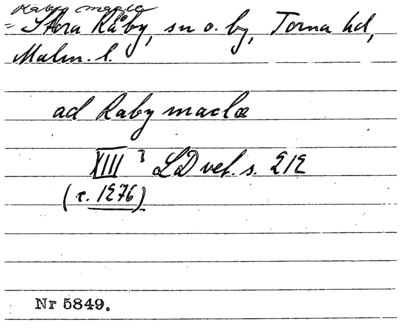 Raby maclæ
= Stora Råby, sn o. by, Torna hd,
Malm. l.
ad Raby maclæ
XIII 3 LD vet. s. 212
(c. 1276)
Nr 5849.